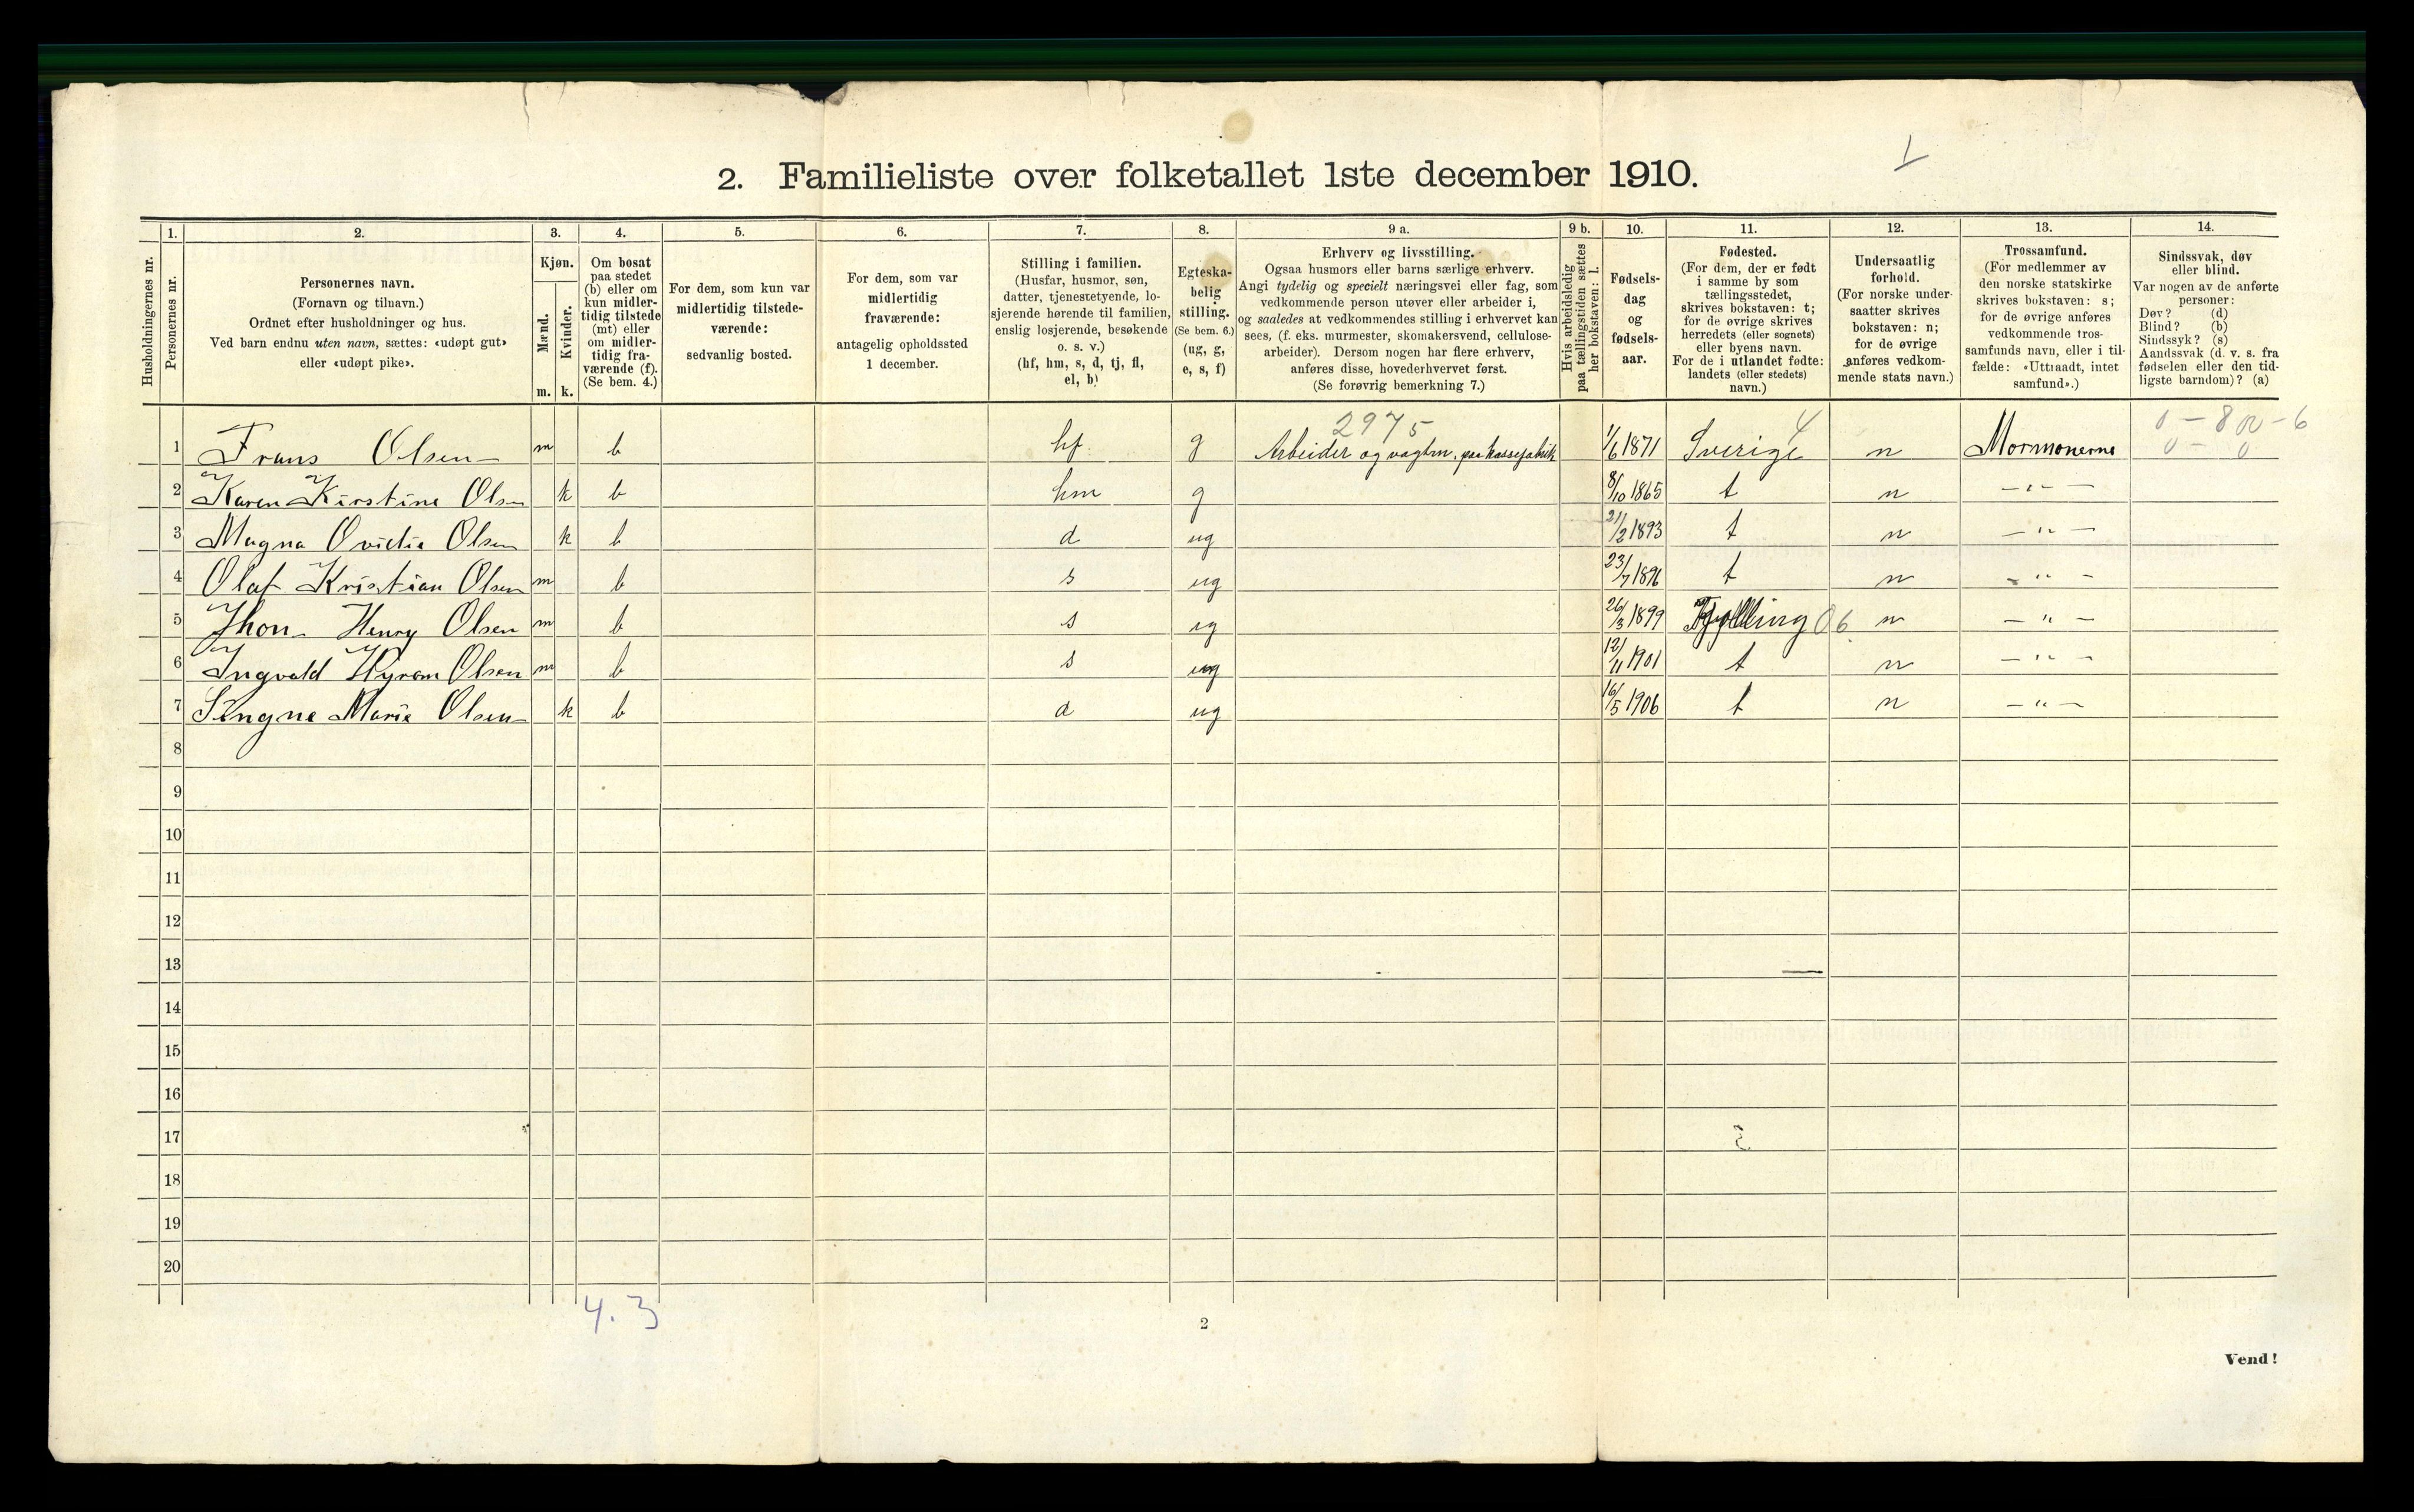 1
2. Familieliste over folketallet 1ste december 1910.
Husholdningernes nr.
1.
Personernes nr.
2.
Personernes navn.
(Fornavn og tilnavn.)
Ordnet efter husholdninger og hus.
Ved barn endnu uten navn, sættes: «udøpt gut»
eller «udøpt pike».
3.
Kjøn.
Mænd.
Kvinder.
m. k.
4.
Om bosat
paa stedet
(b) eller om
kun midler-
tidig tilstede
(mt) eller
om midler-
tidig fra-
værende (f).
(Se bem. 4.)
5.
For dem, som kun var
midlertidig tilstede-
værende:
sedvanlig bosted.
6.
For dem, som var
midlertidig
fraværende:
antagelig opholdssted
1 december.
7.
Stilling i familien.
(Husfar, husmor, søn,
datter, tjenestetyende, lo-
sjerende hørende til familien,
enslig losjerende, besøkende
o. s. v.)
(hf, hm, s, d, tj, fl,
el, b)
8.
Egteska-
belig
stilling.
(Se bem. 6.)
(ug, g,
e, s, f)
9 a.
Erhverv og livsstilling.
Ogsaa husmors eller barns særlige erhverv.
Angi tydelig og specielt næringsvei eller fag, som
vedkommende person utøver eller arbeider i,
og saaledes at vedkommendes stilling i erhvervet kan
sees, (f. eks. murmester, skomakersvend, cellulose-
arbeider). Dersom nogen har flere erhverv,
anføres disse, hovederhvervet først.
(Se forøvrig bemerkning 7.)
9 b.
Hvis arbeidsledig
paa tællingstiden sættes
her bokstaven: l.
10.
Fødsels-
dag
og
fødsels-
aar.
11.
Fødested.
(For dem, der er født
i samme by som
tællingsstedet,
skrives bokstaven: t;
for de øvrige skrives
herredets (eller sognets)
eller byens navn.
For de i utlandet fødte:
landets (eller stedets)
navn.)
12.
Undersaatlig
forhold.
(For norske under-
saatter skrives
bokstaven: n;
for de øvrige
anføres vedkom-
mende stats navn.)
13.
Trossamfund.
(For medlemmer av
den norske statskirke
skrives bokstaven: s;
for de øvrige anføres
vedkommende tros-
samfunds navn, eller i til-
fælde: «Uttraadt, intet
samfund».)
14.
Sindssvak, døv
eller blind.
Var nogen av de anførte
personer:
Døv? (d)
Blind? (b)
Sindssyk? (s)
Aandssvak (d. v. s. fra
fødselen eller den tid-
ligste barndom)? (a)
2975 4 0 - 800 - 6
1 Frans Olsen m b hf g Arbeider og vagtm. paa kassefabrik 1/6 1871 Sverige n Mormonerne 0 - 0
2 Karen Kirstine Olsen k b hm g 8/10 1865 t n — " —
3 Magna Ovidia Olsen k b d ug 21/2 1893 t n — " —
4 Olaf Kristian Olsen m b s ug 23/7 1896 t n — " —
5 Jhon Henry Olsen m b s ug 26/3 1899 Tjølling 06 n — " —
6 Ingvald Hyrom Olsen m b s ug 12/11 1901 t n — " —
7 Singne Marie Olsen k b d ug 16/5 1906 t n — " —
8
9
10
11
12
13
14
15
16
17
18
19
20
4. 3
2
Vend!